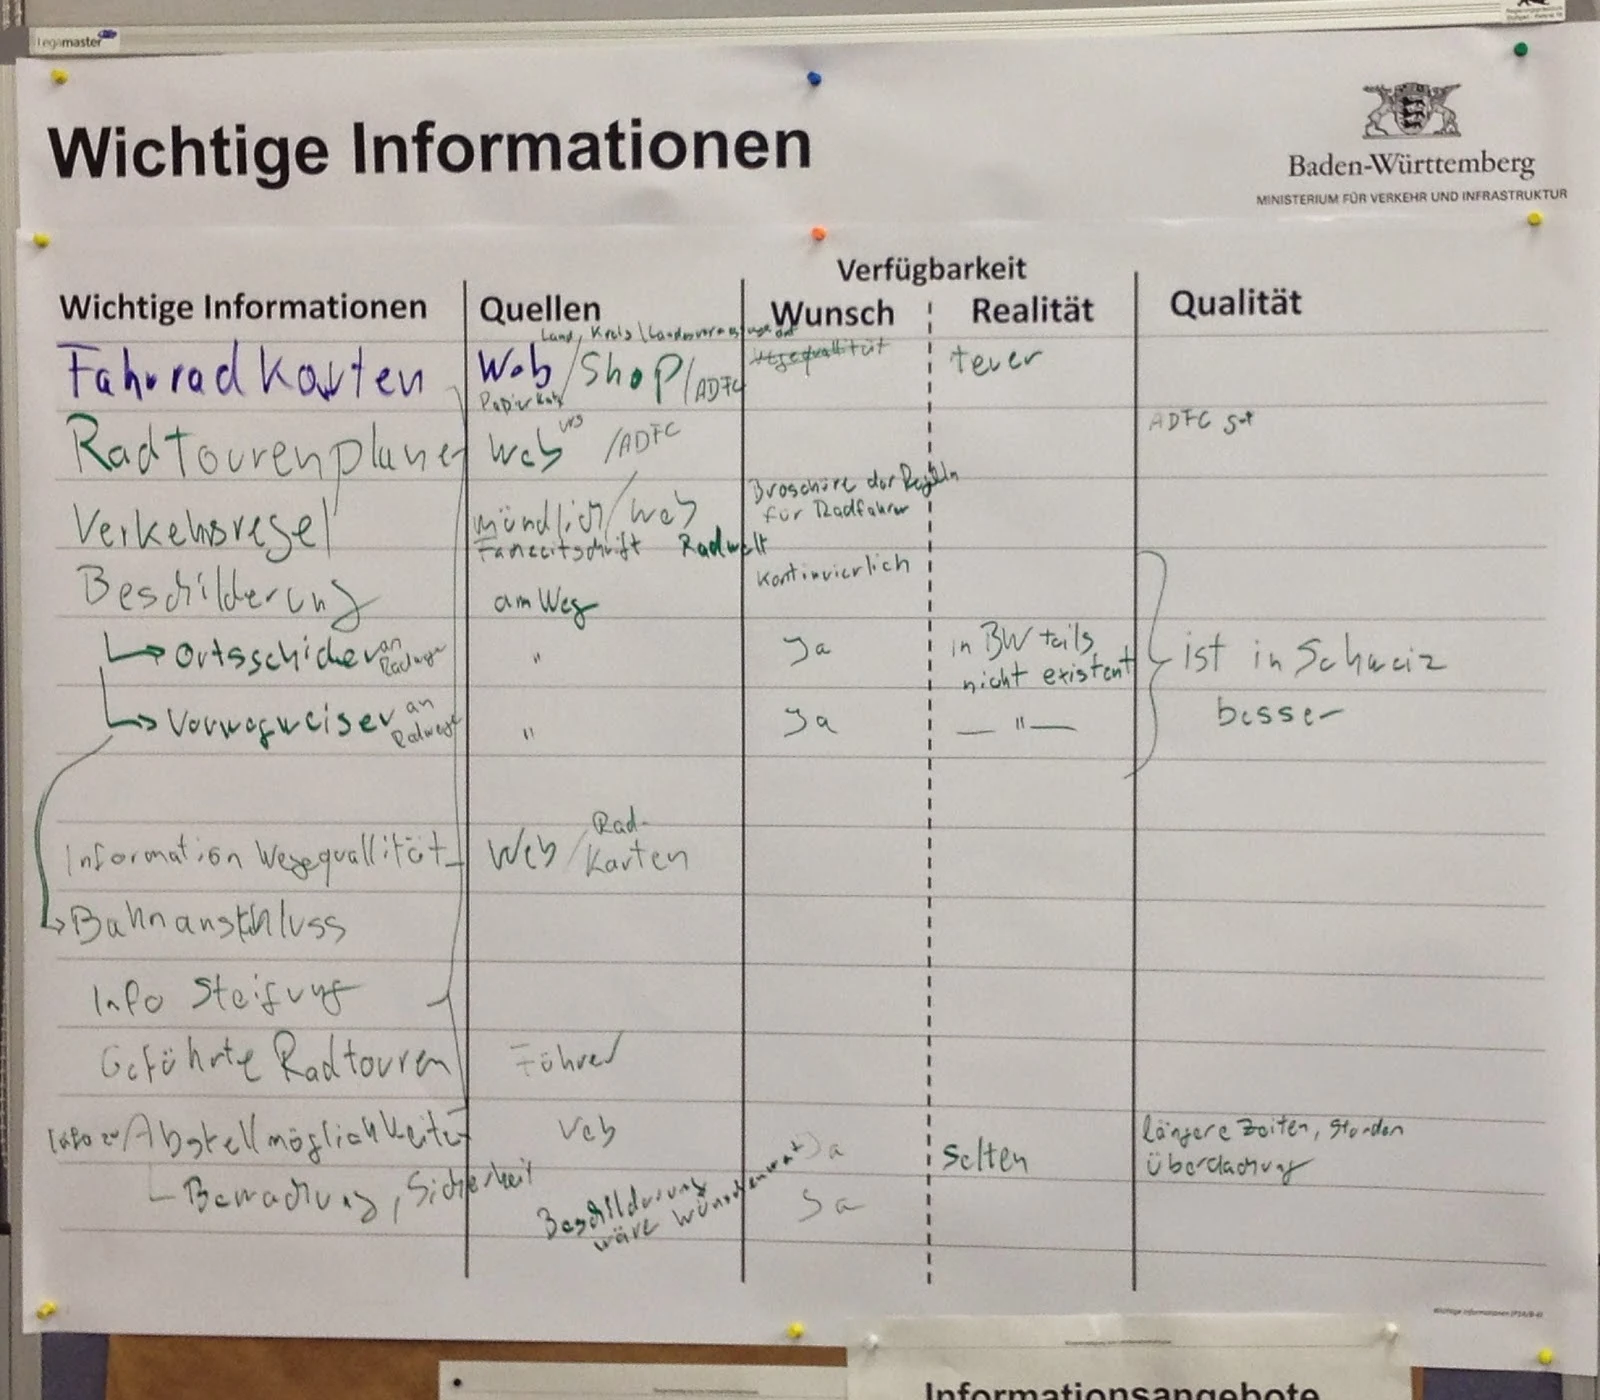 Legamaster
Wichtige Informationen
Baden-Württemberg
MINISTERIUM FÜR VERKEHR UND INFRASTRUKTUR
Verfügbarkeit
Wichtige Informationen Quellen Wunsch Realität Qualität
Land, Kreis
Fahrradkarten Web / Shop / ADFC Wegequallität teuer
Radtourenplaner Web VRS / ADFC ADFC gut
Verkehrsregel mündlich / Web Broschüre der Regeln
für Radfahrer
Radwelt
Beschilderung am Weg Kontinuierlich
Ortsschilder an Radwege " Ja in BW teils
nicht existent
ist in Schweiz
besser
Vorwegweiser an Radwege " Ja — " —
Information Wegequallität Web / Rad-
Karten
Bahnanschluss
Info Steigung
Geführte Radtouren Führer
Info zu Abstellmöglichkeiten Web Ja selten längere Zeiten, Stunden
Überdachung
Bewachung, Sicherheit Beschilderung
wäre wünschenswert Ja
Informationsangebote